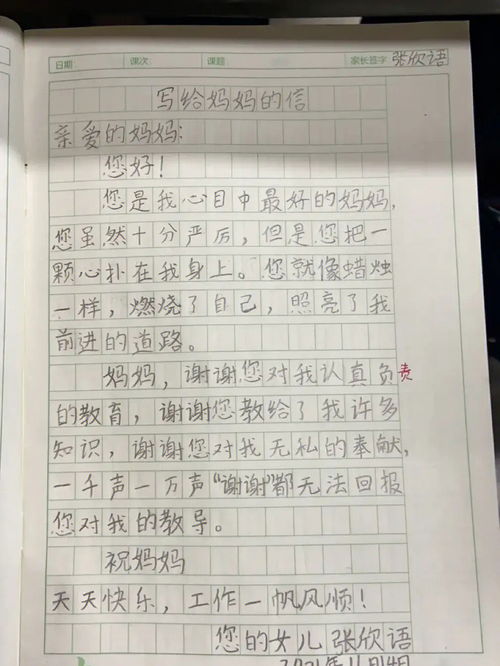 日期 课次 课题 家长签字 张欣语
写给妈妈的信
亲爱的妈妈:
您好!
您是我心目中最好的妈妈,
您虽然十分严厉,但是您把一
颗心扑在我身上。您就像蜡烛
一样,燃烧了自己,照亮了我
前进的道路。
妈妈,谢谢您对我认真负责
的教育,谢谢您教给了我许多
知识,谢谢您对我无私的奉献,
一千声一万声“谢谢”都无法回报
您对我的教导。
祝妈妈
天天快乐,工作一帆风顺!
您的女儿 张欣语